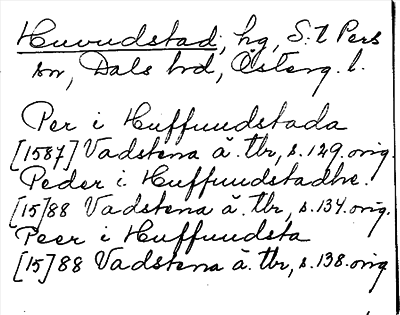 Huvudstad, hg, S:t Pers
sn, Dals hd, Österg. l.
Per i Huffuudstada
[1587] Vadstena ä. tbr, s. 129. orig.
Peder i Huffuudstadhe.
[15]88 Vadstena ä. tbr, s. 134. orig.
Peer i Huffuudsta
[15]88 Vadstena ä. tbr, s. 138. orig